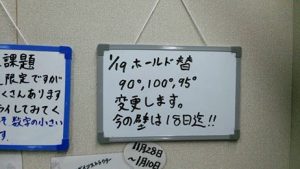 課題
限定ですが
くさんあります
ライしてみてく
そ 数字の小さい
す
1/19 ホールド替
90°,100°,95°
変更します。
今の壁は18日迄!!
11月28日
～1月10日